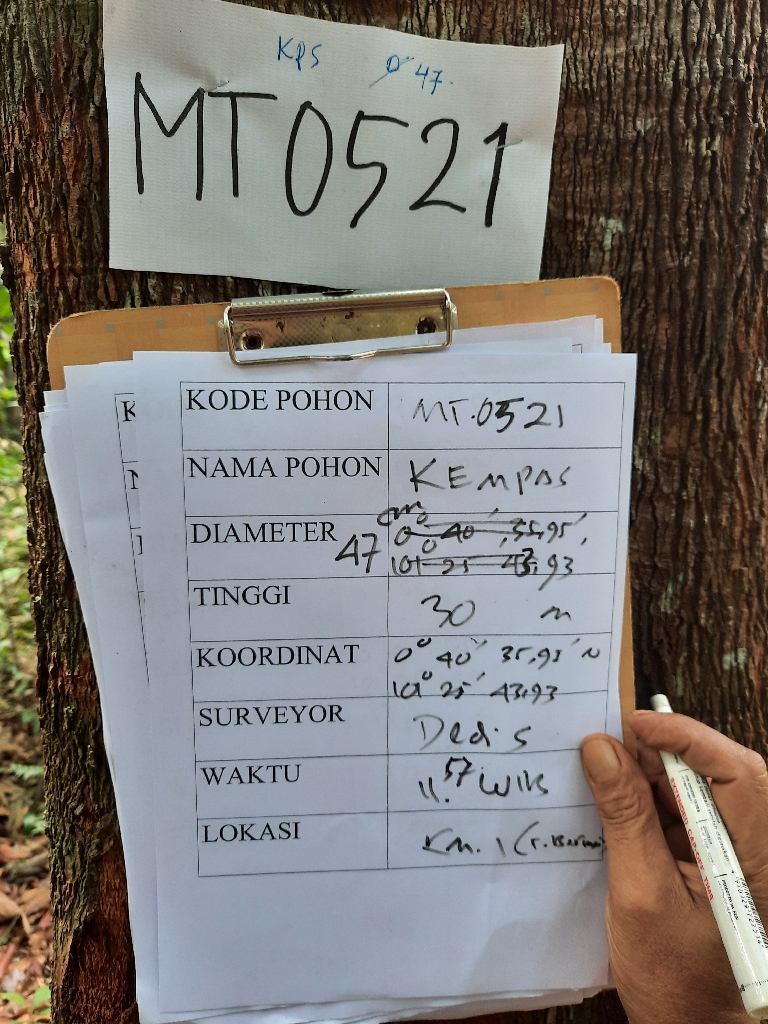 KPS Ø 47
MT0521
KODE POHON MT.0521
NAMA POHON KEMPAS
DIAMETER 47 cm 0° 40' 35,95"
101° 25' 43,93
TINGGI 30 m
KOORDINAT 0° 40' 35,95" N
101° 25' 43,93
SURVEYOR Dedi S
WAKTU 11.57 WIB
LOKASI Km. 1 (T.